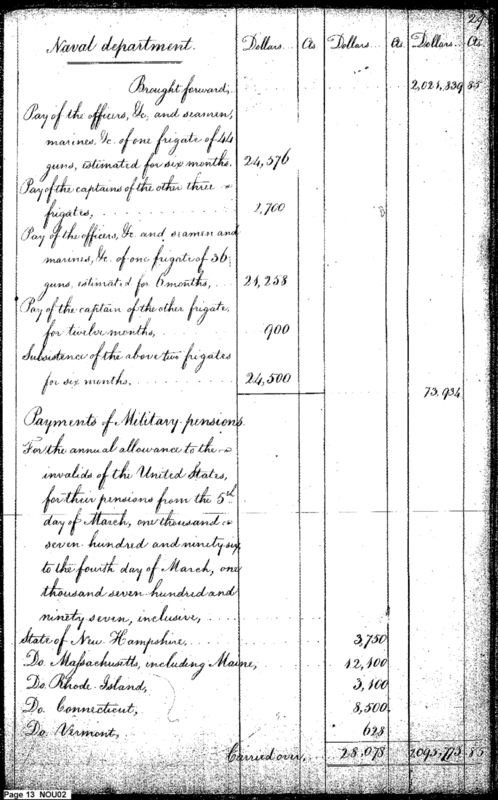 29
Naval department. Dollars.. Cts Dollars... Cts Dollars... Cts
Brought forward, 2,021,839 85
Pay of the officers, &c. and seamen,
marines, &c. of one frigate of 44
guns, estimated for six months. 24,576
Pay of the captains of the other three
frigates, 2,700
Pay of the officers, &c. and seamen and
marines, &c. of one frigate of 36
guns, estimated for 6 months, 21,258
Pay of the captain of the other frigate,
for twelve months, 900
Subsistence of the above two frigates
for six months, 24,500 73,934
Payments of Military pensions.
For the annual allowance to the
invalids of the United States,
for their pensions from the 5th
day of March, one thousand
seven hundred and ninety six,
to the fourth day of March, one
thousand seven hundred and
ninety seven, inclusive,
State of New Hampshire, 3,750
Do. Massachusetts, including Maine, 12,100
Do. Rhode Island, 3,100
Do. Connecticut, 8,500
Do. Vermont, 628
Carried over, 28,078 2,095,773 85
Page 13 NOU02